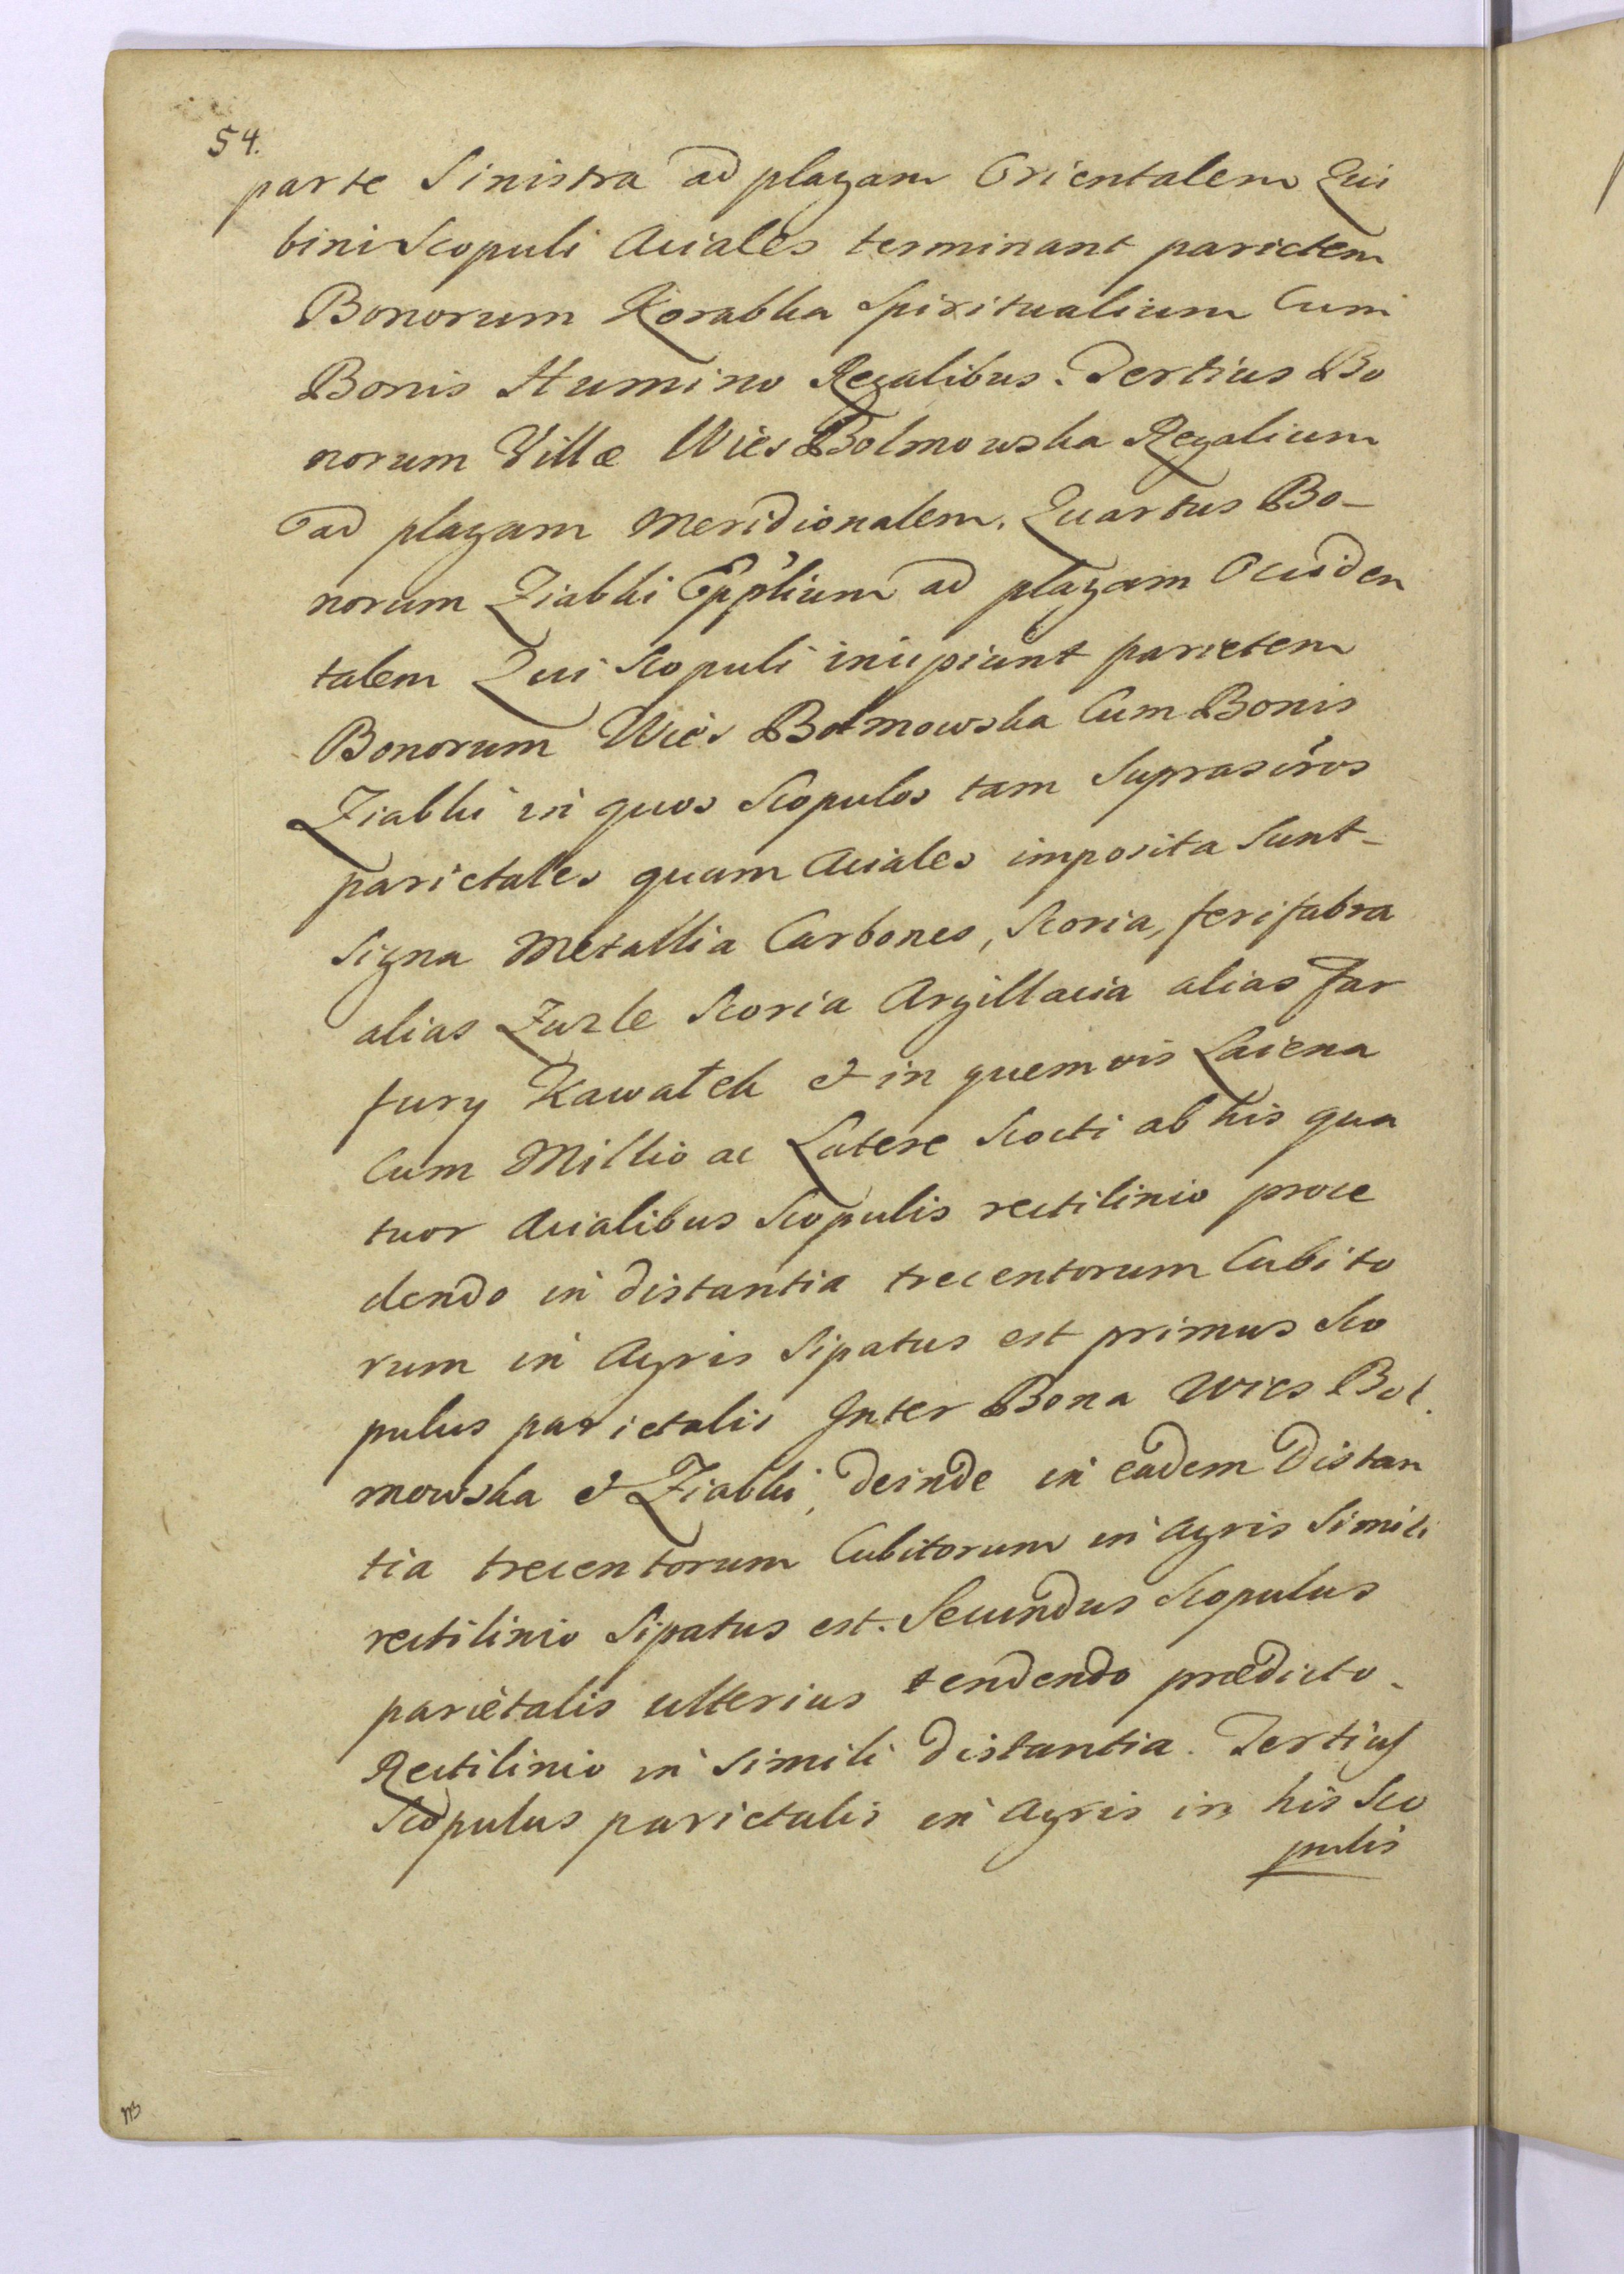 54.
parte Sinistra ad plagam Orientalem Qui
bini Scopuli Aciales terminant parietem
Bonorum Korabka Spiritualium Cum
Bonis Humino Regalibus. Tertius Bo
norum Villæ Wies Bolmowska Regalium
ad plagam Meridionalem. Quartus Bo-
norum Ziabki Epplium ad plagam Occiden
talem Qui Scopuli incipiunt parietem
Bonorum Wies Bolmowska Cum Bonis
Ziabki in quos Scopulos tam Suprascros
parietales quam Aciales imposita Sunt-
Signa Metallia Carbones, Scoria, ferifabra
alias Zuzle Scoria Argillacia alias Far
fury Kawałek & in quemvis Laiena
Cum Millio ac Latere Scocti ab his qua
tuor Acialibus Scopulis rectilinio proce
dendo in distantia trecentorum Cubito
rum in Agris Sipatus est primus Sco
pulus parietalis Inter Bona Wies Bol.
mowska & Ziabki, deinde in eadem Distan
tia trecentorum Cubitorum in Agris Simili
rectilinio Sipatus est. Secundus Scopulus
parietalis ulterius tendendo prædicto-
Rectilinio in Simili distantia. Tertius
Scopulus parietalis in Agris in his Sco
pulis